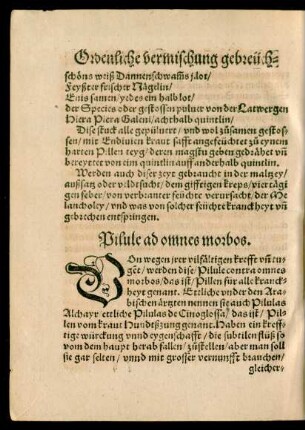 Ordenliche vermischung gebreüch
schöns weiß Dannenschwaṁs j.lot/
Feyßter frischer Nägelin/
Enis samen/yedes ein halb lot/
der Species oder gestossen puluer von der Latwergen
Hiera Piera Galeni/achthalb quintlin/
Dise stuck alle gepüluert/vnd wol zůsamen gestos-
sen/mit Endiuien kraut safft angefeüchtet zů eynem
harten Pillen teyg/deren magstu geben gedrähet vñ
bereyttet von eim quintlin auff anderhalb quintlin.
Werden auch diser zeyt gebraucht in der maltzey/
außsatz oder veldtsucht/dem gifftigen kreps/viertägi
gen feber/von verbranter feüchte verursacht/der Me
lancholey/vnd was von solcher feüchte kranckheyt vñ
gebrechen entspringen.
Pilule ad omnes morbos.
VOn wegen jrer vilfältigen krefft vñ tu-
get/werden dise/Pilule contra omnes
morbos/das ist/Pillen für alle kranck-
heyt genant. Ettliche vnder den Ara-
bischen ärtzten nennen sie auch Pilulas
Alchayr/ettliche Pilulas de Cinoglossa/das ist/Pil-
len vom kraut Hundtßzung genant. Haben ein kreff-
tige würckung vnnd eygenschafft/die subtilen flüß so
vom dem haupt herab fallen/zůstellen/aber man soll
sie gar selten/vnnd mit grosser vernunfft brauchen/
gleicher-